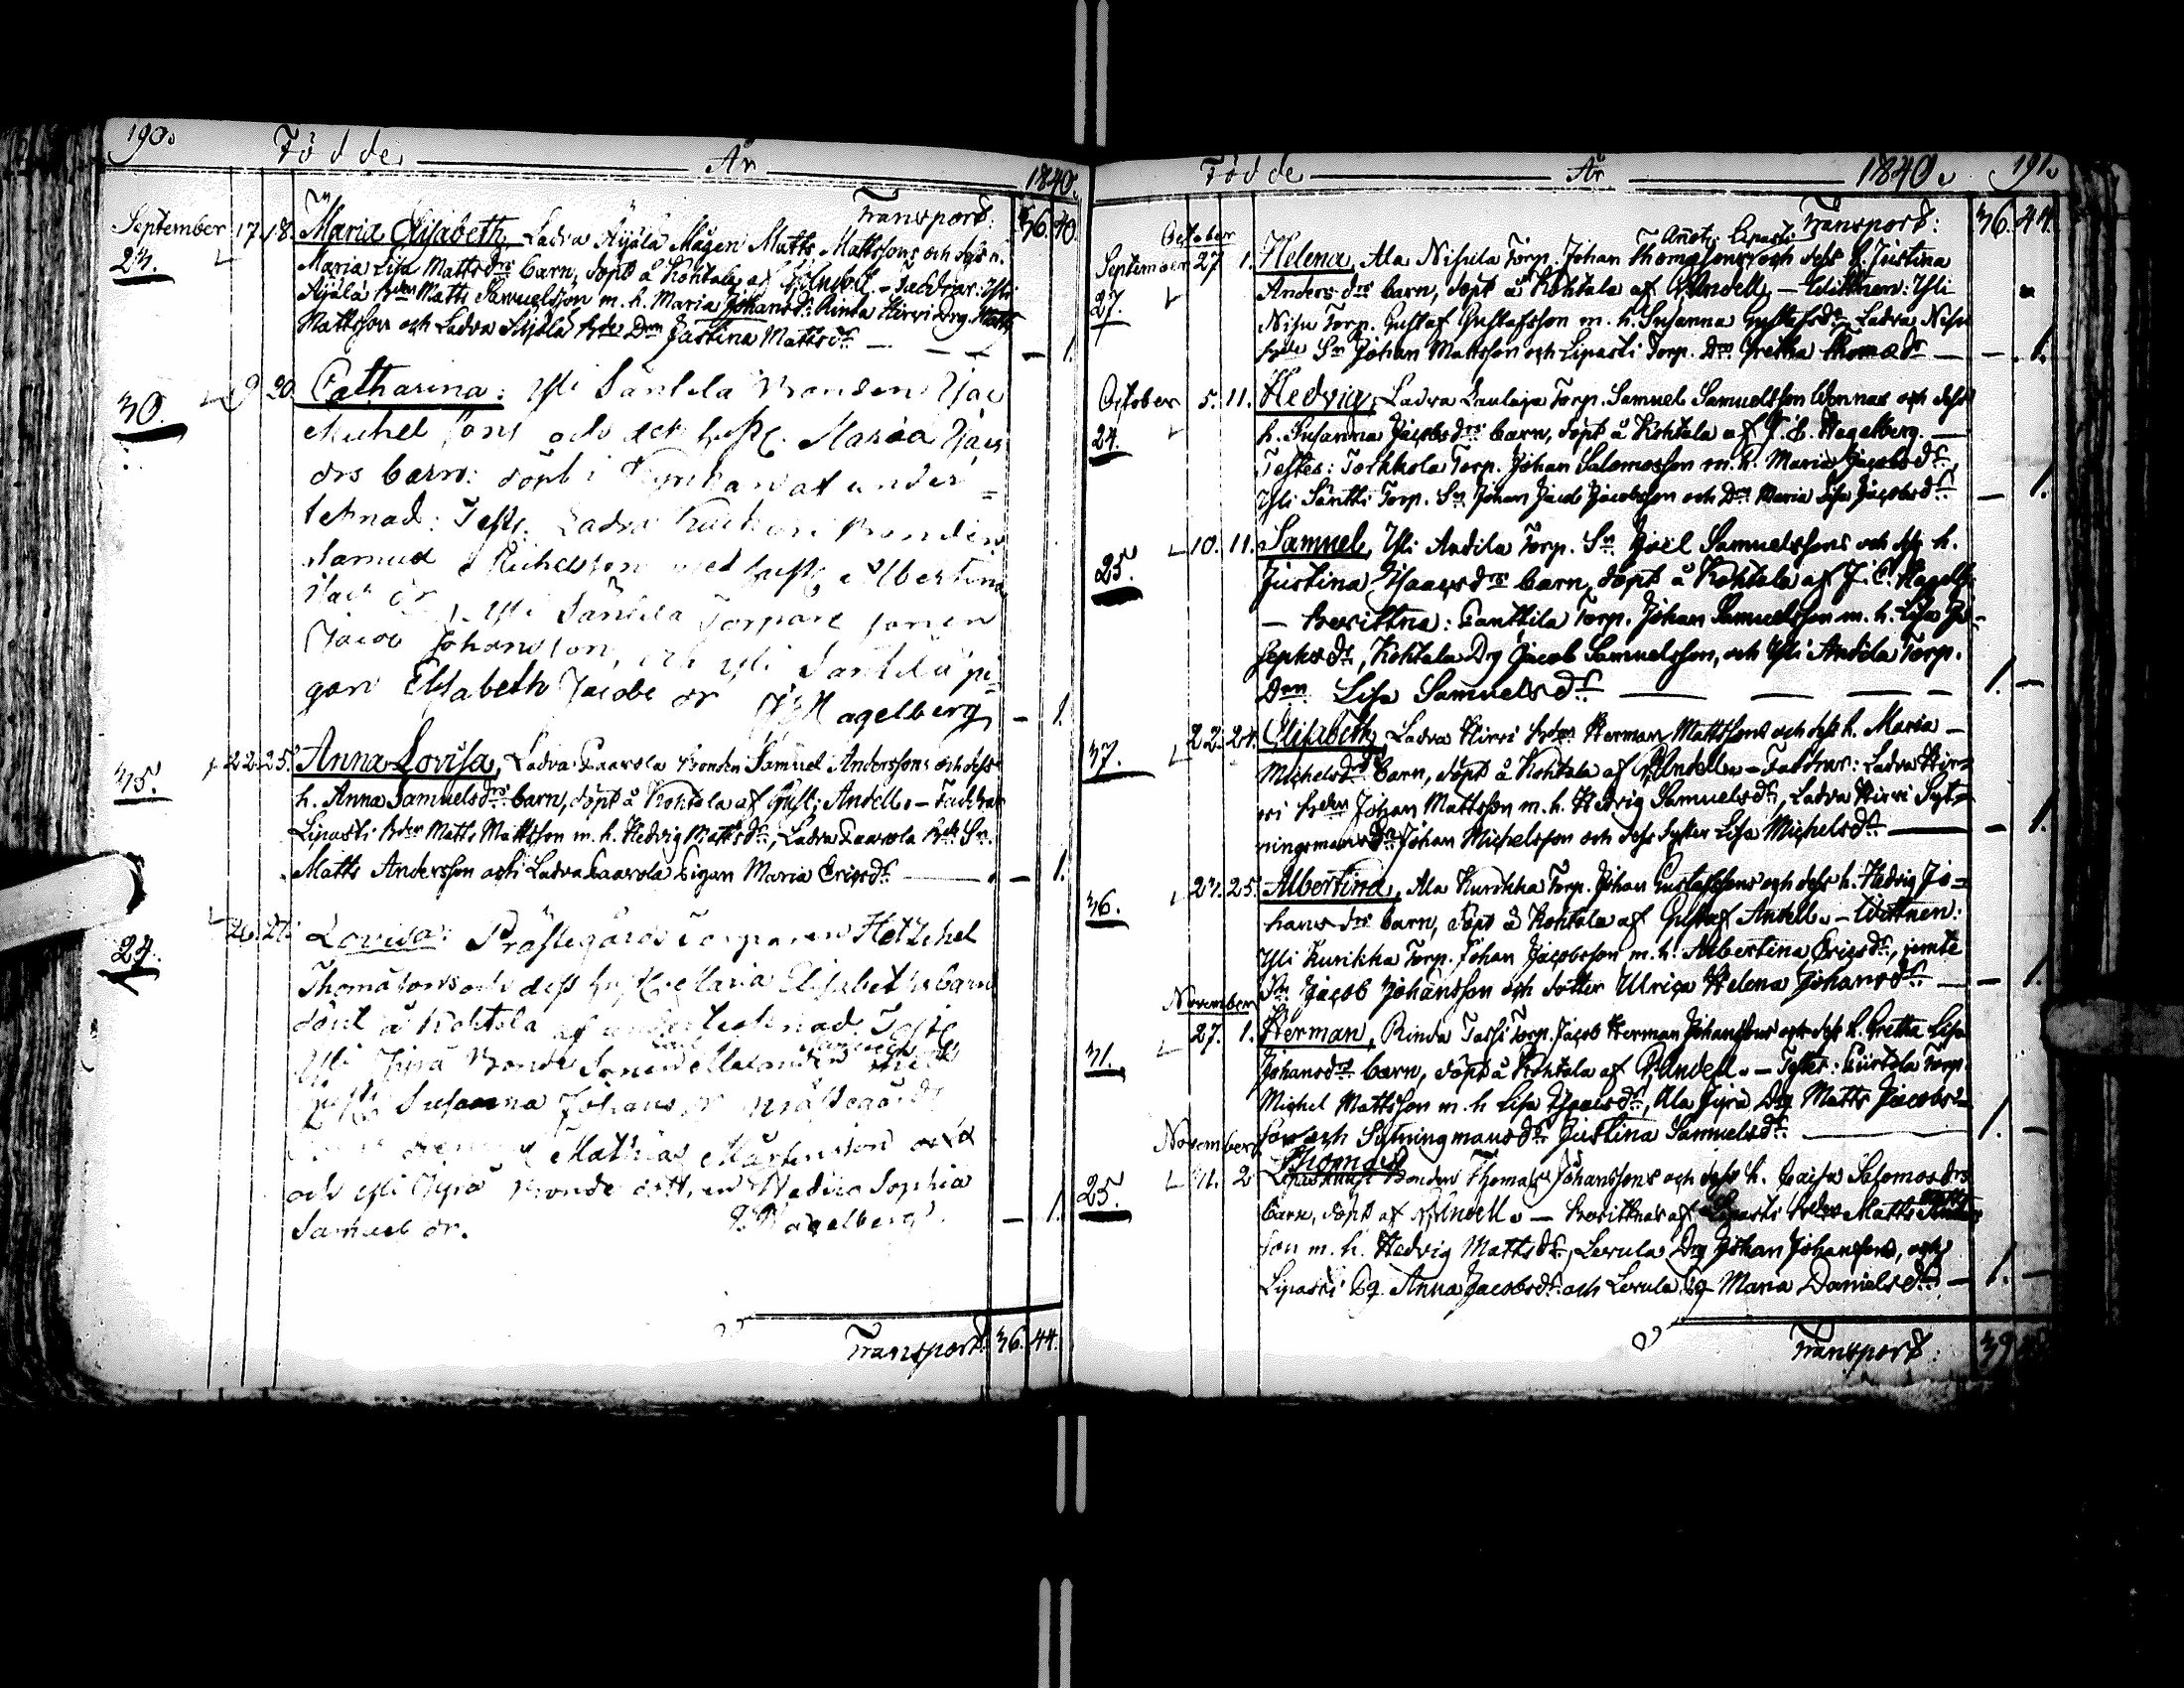 190.
Födde. År 1840.
Transport: 36. 40.
September 17. 18. Maria Elisabeth, Ladva Äijälä Mågen Matts Mattssons och dess h.
23. Maria Lisa Mattsdrs barn, döpt å Kohtala af G. Andell. - Faddrar: Yli
Äijälä Matts Samuelsson m. h. Maria Johansdr: Rinda Hirvi Drg. Matts
Mattsson och Ladva Äijälä Dn Justina Mattsdr — 1.
30. 9 20. Catharina: Yli Säntila Bonden Isac
Michelsons och dess hust. Maria Isacs
drs barn: döpt i Kyrkan af under-
tecknad: Test. Ladva Bonden
Samuel Michelsson med hust. Albertina
Isacs dr Yli Säntila Torpare sonen
Jacob Johansson, och Yli Säntila pi-
gan Elisabeth Jacobs dr Hagelberg — 1.
35. 22. 25. Anna Lovisa, Ladva Paavola Bonden Samuel Anderssons och dess
h. Anna Samuelsdrs barn, döpt å Kohtala af Gust. Andell. - Faddrar
Lipasti Matts Mattsson m. h. Hedvig Mattsdr, Ladva Paavola Sn.
Matts Andersson och Ladva Paavola Pigan Maria Ericsdr — 1.
24. 26. 27. Lovisa: Prästegårds Torparen Hetzekel
Thomasons och dess hust. Maria Elisabeths barn
döpt å Kohtala af undertecknad. Test.
Yli Jyrä Bonde Sonen med
hust. Susanna Johans dr Prästegårds
Mathias Mårtensson
och Yli Jyrä Bonde dottren Hedvig Sophia
Samuels dr. Hagelberg — 1.
Transport: 36. 44.
Födde År 1840. 191.
Transport: 36. 44.
October Annot. Lipasti
September 27 1. Helena, Ala Nisula Torp. Johan Thomasons och dess h. Justina
27. Anders drs barn, döpt å Kohtala af G. Andell. - Wittnen: Yli
Nisu Torp. Gustaf Gustafsson m. h. Susanna Gustafsdr, Ladva Nisu
Sn Johan Mattsson och Lipasti Torp. Dn Gretha Thomædr — 1.
October 5. 11. Hedvig, Ladva Laulaja Torp. Samuel Samuelsson Wennas och dess
24. h. Susanna Jacobsdrs barn, döpt å Kohtala af J. E. Hagelberg. —
Testes: Torkkola Torp. Johan Salomosson m. h. Maria Jacobsdr,
Yli Säntti Torp. Sn Johan Jacob Jacobsson och Dn Maria Lisa Jacobsdr — 1.
10. 11. Samuel, Yli Andila Torp. Sn Joël Samuelssons och dess h.
25. Justina Isaacsdrs barn, döpt å Kohtala af J. E. Hagelb.
— Bevittna: Panttila Torp. Johan Samuelsson m. h. Lisa Jo-
sephsdr, Kohtala Drg Jacob Samuelsson, och Yli Andila Torp.
Dn Lisa Samuelsdr — 1. —
22. 24. Elisabeth, Ladva Hirvi Herman Mattssons och dess h. Maria
37. Michelsdrs barn, döpt å Kohtala af G. Andell. - Faddrar: Ladva Hir-
vi Johan Mattsson m. h. Hedvig Samuelsdr, Ladva Hirvi Syt-
ningsman Johan Michelsson och dess syster Lisa Michelsdr — 1.
27. 25. Albertina, Ala Kurikka Torp. Johan Gustafssons och dess h. Hedvig Jo-
36. hans drs barn, döpt å Kohtala af Gustaf Andell. - Wittnen:
Yli Kurikka Torp. Johan Jacobsson m. h. Albertina Ericsdr, jemte
Sn Jacob Johansson och dotter Ulrica Helena Johansdr — 1.
November
27. 1. Herman, Rinda Torp. Jacob Herman Johanssons och dess h. Gretha Lisa
31. Johansdrs barn, döpt å Kohtala af G. Andell. - Testes: Torp.
Michel Mattsson m. h. Lisa Isaacsdr, Ala Jyrä Drg Matts Jacobs-
son och Sytningmansdr Justina Samuelsdr. — 1. —
November Thomas
1. 2 Bonden Thomas Johanssons och dess h. Caisa Salomosdrs
25. barn, döpt af G. Andell. — Bevittnas af Lipasti Matts Matts
son m. h. Hedvig Mattsdr, Lerula Drg Johan Johansson, och
Lipasti Pg. Anna Jacobsdr och Lerula Pg Maria Danielsdr — 1. —
Transport: 39